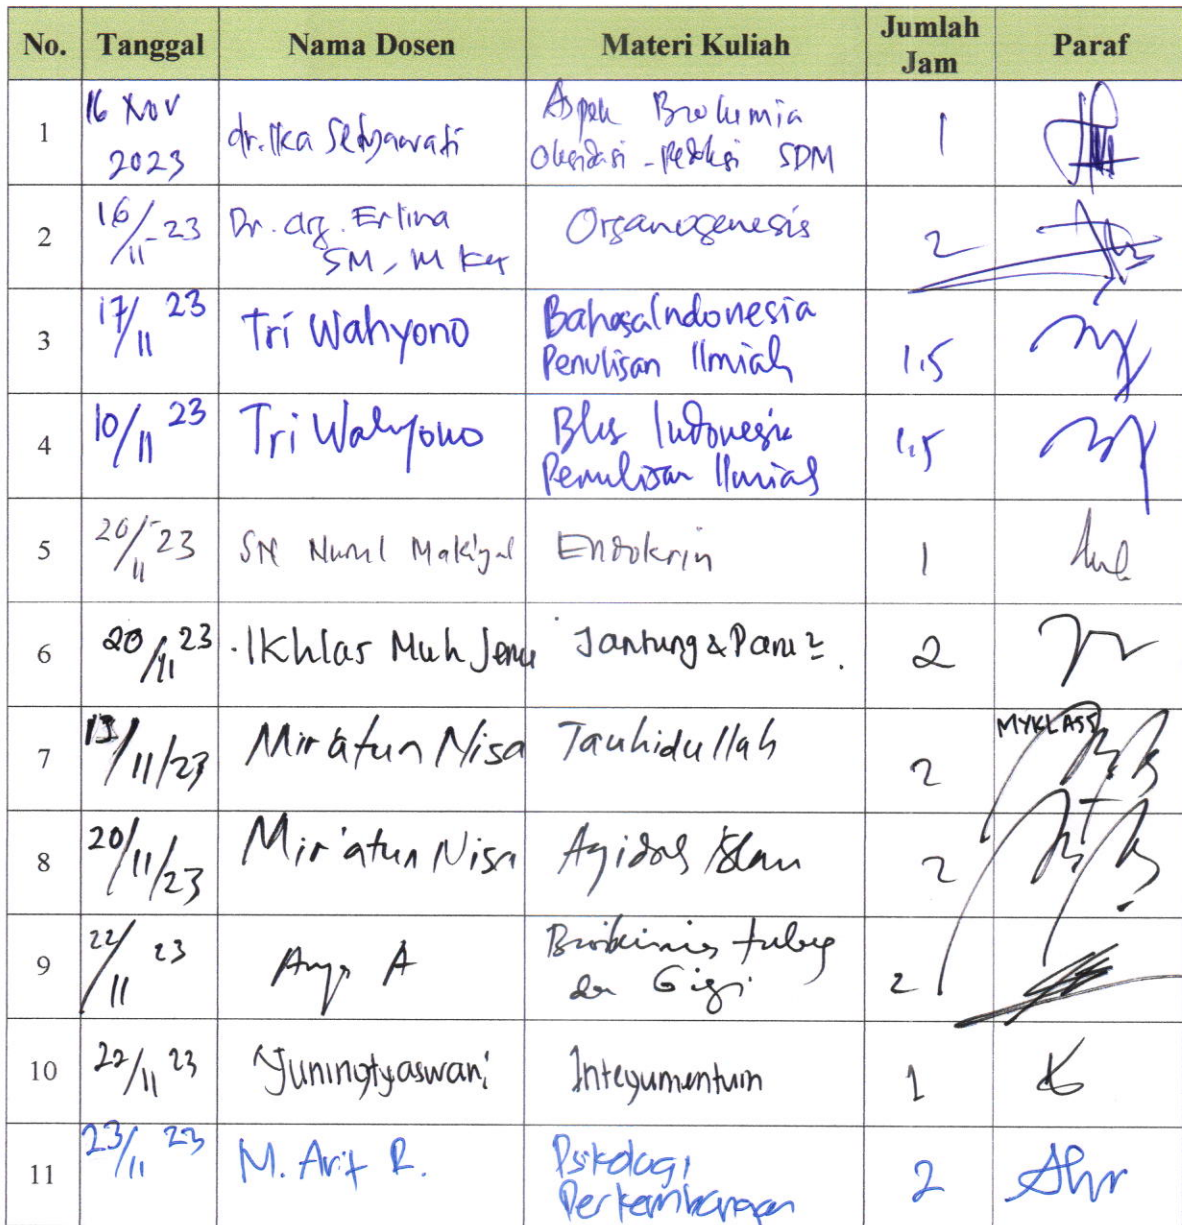 No. Tanggal Nama Dosen Materi Kuliah Jumlah Jam Paraf
1 16 Nov 2023 dr. Ika Setyawati Aspek Biokimia Oksidasi - Reduksi SDM 1
2 16/11-23 Dr. drg. Erlina SM, M Kes Organogenesis 2
3 17/11 23 Tri Wahyono Bahasa Indonesia Penulisan Ilmiah 1.5
4 10/11 23 Tri Wahyono Bhs Indonesia Penulisan Ilmiah 1.5
5 20/11-23 SN Nurul Endokrin 1
6 20/11 23 Ikhlas Muh Jenie Jantung & Paru2. 2
7 13/11/23 Mir'atun Nisa Tauhidullah 2 MYKLASS
8 20/11/23 Mir'atun Nisa Aqidah Islam 2
9 22/11 23 A Biokimia tulang dan Gigi 2
10 22/11 23 Yuningtyaswari Integumentum 1
11 23/11 23 M. Arif R. Psikologi Perkembangan 2